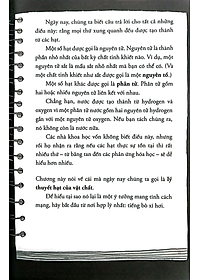 Ngày nay, chúng ta biết câu trả lời cho tất cả những
điều này: rằng mọi thứ xung quanh đều được tạo thành
từ các hạt.
Một số hạt được gọi là nguyên tử. Nguyên tử là thành
phần nhỏ nhất của bất kỳ chất tinh khiết nào. Ví dụ, một
nguyên tử sắt là mẩu sắt nhỏ nhất mà bạn có thể có. (Và
một chất tinh khiết như sắt được gọi là một nguyên tố.)
Một số hạt khác được gọi là phân tử. Phân tử gồm
hai hoặc nhiều nguyên tử liên kết với nhau.
Chẳng hạn, nước được tạo thành từ hydrogen và
oxygen vì một phân tử nước gồm hai nguyên tử hydrogen
gắn với một nguyên tử oxygen. Nếu bạn tách chúng ra,
nó không còn là nước nữa.
Các nhà khoa học vốn không biết điều này, nhưng
rồi họ nhận ra rằng nếu các hạt thực sự tồn tại thì rất
nhiều thứ – từ băng tan đến các phản ứng hóa học – sẽ dễ
hiểu hơn nhiều.
Chương này nói về cái mà ngày nay chúng ta gọi là lý
thuyết hạt của vật chất.
Để hiểu tại sao nó lại là một ý tưởng mang tính cách
mạng, hãy bắt đầu từ nơi hợp lý nhất: tiếng bò xì hơi.